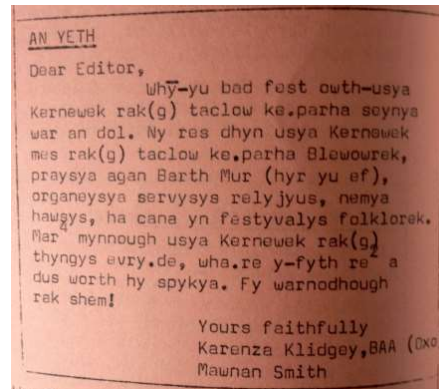 AN YETH
Dear Editor,
Whȳ-yu bad fest owth-usya
Kernewek rak(g) taclow ke.parha seynya
war an dol. Ny res dhyn usya Kernewek
mes rak(g) taclow ke.parha Blewowrek,
praysya agan Barth Mur (hyr yu ef),
organeysya servysys relyjyus, nemya
hawsys, ha cana yn festyvalys folklorek.
Mar⁴ mynnough usya Kernewek rak(g)
thyngys evry.de, wha.re y-fyth re² a
dus worth hy spykya. Fy warnodhough
rak shem!
Yours faithfully
Karenza Klidgey,BAA (Oxo
Mawnan Smith